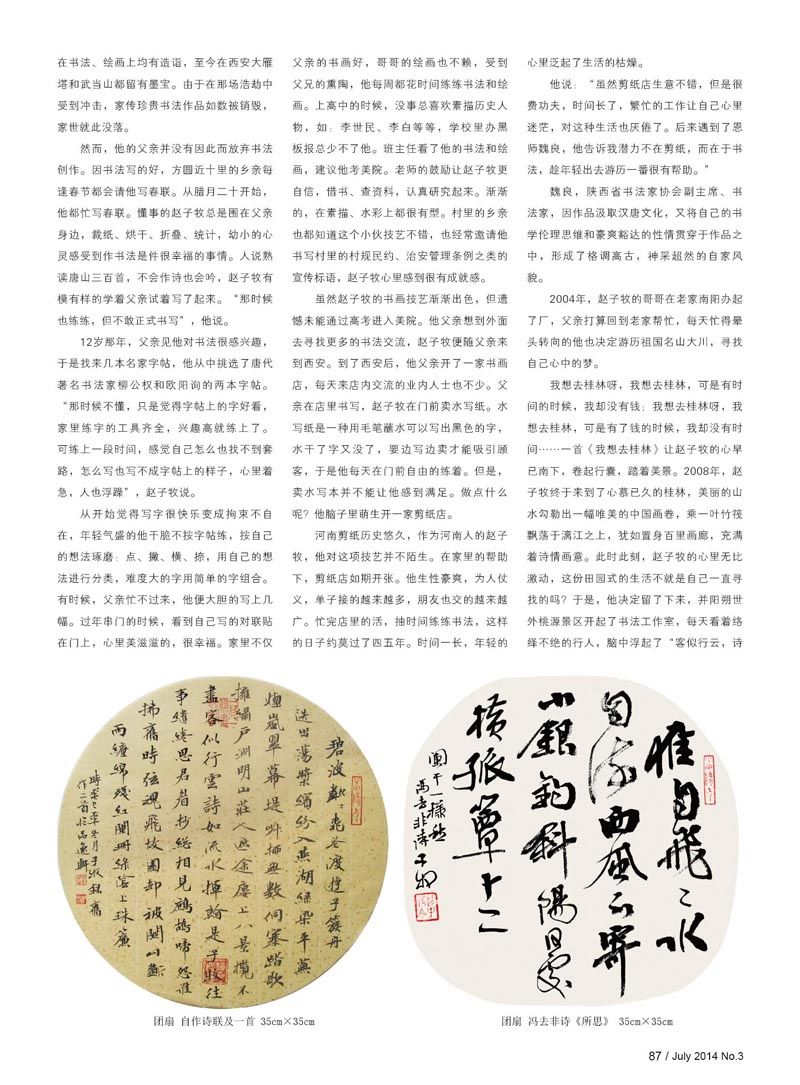 在书法、绘画上均有造诣，至今在西安大雁
塔和武当山都留有墨宝。由于在那场浩劫中
受到冲击，家传珍贵书法作品如数被销毁，
家世就此没落。
然而，他的父亲并没有因此而放弃书法
创作。因书法写的好，方圆近十里的乡亲每
逢春节都会请他写春联。从腊月二十开始，
他都忙写春联。懂事的赵子牧总是围在父亲
身边，裁纸、烘干、折叠、统计，幼小的心
灵感受到作书法是件很幸福的事情。人说熟
读唐山三百首，不会作诗也会吟，赵子牧有
模有样的学着父亲试着写了起来。“那时候
也练练，但不敢正式书写”，他说。
12岁那年，父亲见他对书法很感兴趣，
于是找来几本名家字帖，他从中挑选了唐代
著名书法家柳公权和欧阳询的两本字帖。
“那时候不懂，只是觉得字帖上的字好看，
家里练字的工具齐全，兴趣高就练上了。
可练上一段时间，感觉自己怎么也找不到套
路，怎么写也写不成字帖上的样子，心里着
急，人也浮躁”，赵子牧说。
从开始觉得写字很快乐变成拘束不自
在，年轻气盛的他干脆不按字帖练，按自己
的想法琢磨：点、撇、横、捺，用自己的想
法进行分类，难度大的字用简单的字组合。
有时候，父亲忙不过来，他便大胆的写上几
幅。过年串门的时候，看到自己写的对联贴
在门上，心里美滋滋的，很幸福。家里不仅
父亲的书画好，哥哥的绘画也不赖，受到
父兄的熏陶，他每周都花时间练练书法和绘
画。上高中的时候，没事总喜欢素描历史人
物，如：李世民、李白等等，学校里办黑
板报总少不了他。班主任看了他的书法和绘
画，建议他考美院。老师的鼓励让赵子牧更
自信，借书、查资料，认真研究起来。渐渐
的，在素描、水彩上都很有型。村里的乡亲
也都知道这个小伙技艺不错，也经常邀请他
书写村里的村规民约、治安管理条例之类的
宣传标语，赵子牧心里感到很有成就感。
虽然赵子牧的书画技艺渐渐出色，但遗
憾未能通过高考进入美院。他父亲想到外面
去寻找更多的书法交流，赵子牧便随父亲来
到西安。到了西安后，他父亲开了一家书画
店，每天来店内交流的业内人士也不少。父
亲在店里书写，赵子牧在门前卖水写纸。水
写纸是一种用毛笔蘸水可以写出黑色的字，
水干了字又没了，要边写边卖才能吸引顾
客，于是他每天在门前自由的练着。但是，
卖水写本并不能让他感到满足。做点什么
呢？他脑子里萌生开一家剪纸店。
河南剪纸历史悠久，作为河南人的赵子
牧，他对这项技艺并不陌生。在家里的帮助
下，剪纸店如期开张。他生性豪爽，为人仗
义，单子接的越来越多，朋友也交的越来越
广。忙完店里的活，抽时间练练书法，这样
的日子约莫过了四五年。时间一长，年轻的
心里泛起了生活的枯燥。
他说：“虽然剪纸店生意不错，但是很
费功夫，时间长了，繁忙的工作让自己心里
迷茫，对这种生活也厌倦了。后来遇到了恩
师魏良，他告诉我潜力不在剪纸，而在于书
法，趁年轻出去游历一番很有帮助。”
魏良，陕西省书法家协会副主席、书
法家，因作品汲取汉唐文化，又将自己的书
学伦理思维和豪爽豁达的性情贯穿于作品之
中，形成了格调高古，神采超然的自家风
貌。
2004年，赵子牧的哥哥在老家南阳办起
了厂，父亲打算回到老家帮忙，每天忙得晕
头转向的他也决定游历祖国名山大川，寻找
自己心中的梦。
我想去桂林呀，我想去桂林，可是有时
间的时候，我却没有钱；我想去桂林呀，我
想去桂林，可是有了钱的时候，我却没有时
间……一首《我想去桂林》让赵子牧的心早
已南下，卷起行囊，踏着美景。2008年，赵
子牧终于来到了心慕已久的桂林，美丽的山
水勾勒出一幅唯美的中国画卷，乘一叶竹筏
飘荡于漓江之上，犹如置身百里画廊，充满
着诗情画意。此时此刻，赵子牧的心里无比
激动，这份田园式的生活不就是自己一直寻
找的吗？于是，他决定留了下来，并阳朔世
外桃源景区开起了书法工作室，每天看着络
绎不绝的行人，脑中浮起了“客似行云，诗
惟自飛〻水
自流西風不寄
小銀鈎斜陽何處
横孤簟十二
闌干一様愁
馮去非詩子牧
团扇 自作诗联及一首 35cm×35cm
团扇 冯去非诗《所思》 35cm×35cm
87 / July 2014 No.3